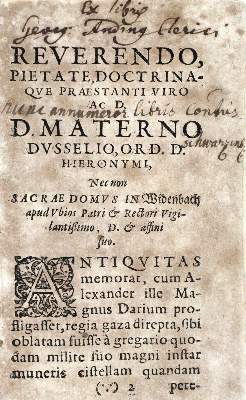 Ex libris
Georg. Clerici
REVERENDO,
PIETATE, DOCTRINA-
QVE PRAESTANTI VIRO
AC D.
nunc annumeror libris
D. MATERNO
DVSSELIO, ORD. D.
HIERONYMI,
Nec non
SACRAE DOMVS IN Widenbach
apud Vbios Patri & Rectori Vigi-
lantissimo, D. & affini
suo.
ANTIQVITAS
memorat, cum A-
lexander ille Ma-
gnus Darium pro-
fligasset, regia gaza direpta, sibi
oblatam fuisse à gregario quo-
dam milite suo magni instar
muneris cistellam quandam
(∵) 2 pere-